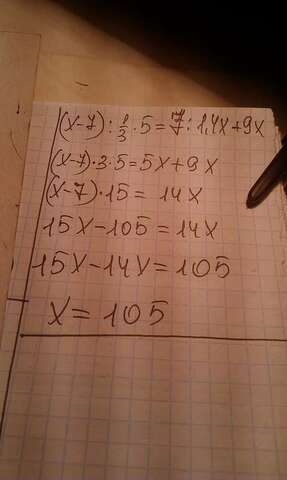 (x-7) : 1/3 · 5 = 7 : 1,4x + 9x
(x-7) · 3 · 5 = 5x + 9x
(x-7) · 15 = 14x
15x - 105 = 14x
15x - 14x = 105
x = 105